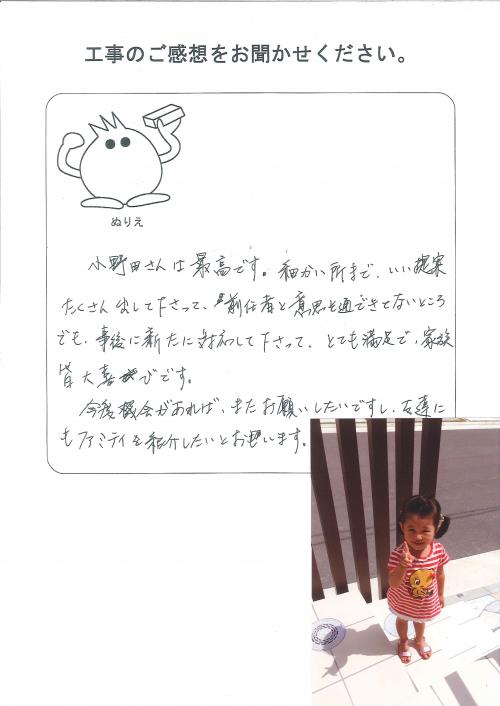 工事のご感想をお聞かせください。
ぬりえ
小野田さんは最高です。細かい所まで、いい提案
たくさん出して下さって、前任者と意思も通できてないところ
でも、事後に新たに対応して下さって、とても満足で、家族
皆大喜びです。
今後機会があれば、またお願いしたいですし、友達に
もファミティを紹介したいとお思います。